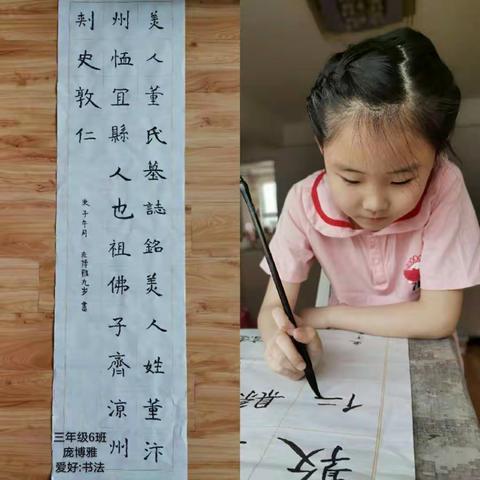 美人董氏墓誌銘美人姓董汴
州恤冝縣人也祖佛子齊涼州
刾史敦仁
庚子午月 庞博雅九岁 書
三年级6班
庞博雅
爱好:书法
仁
敦